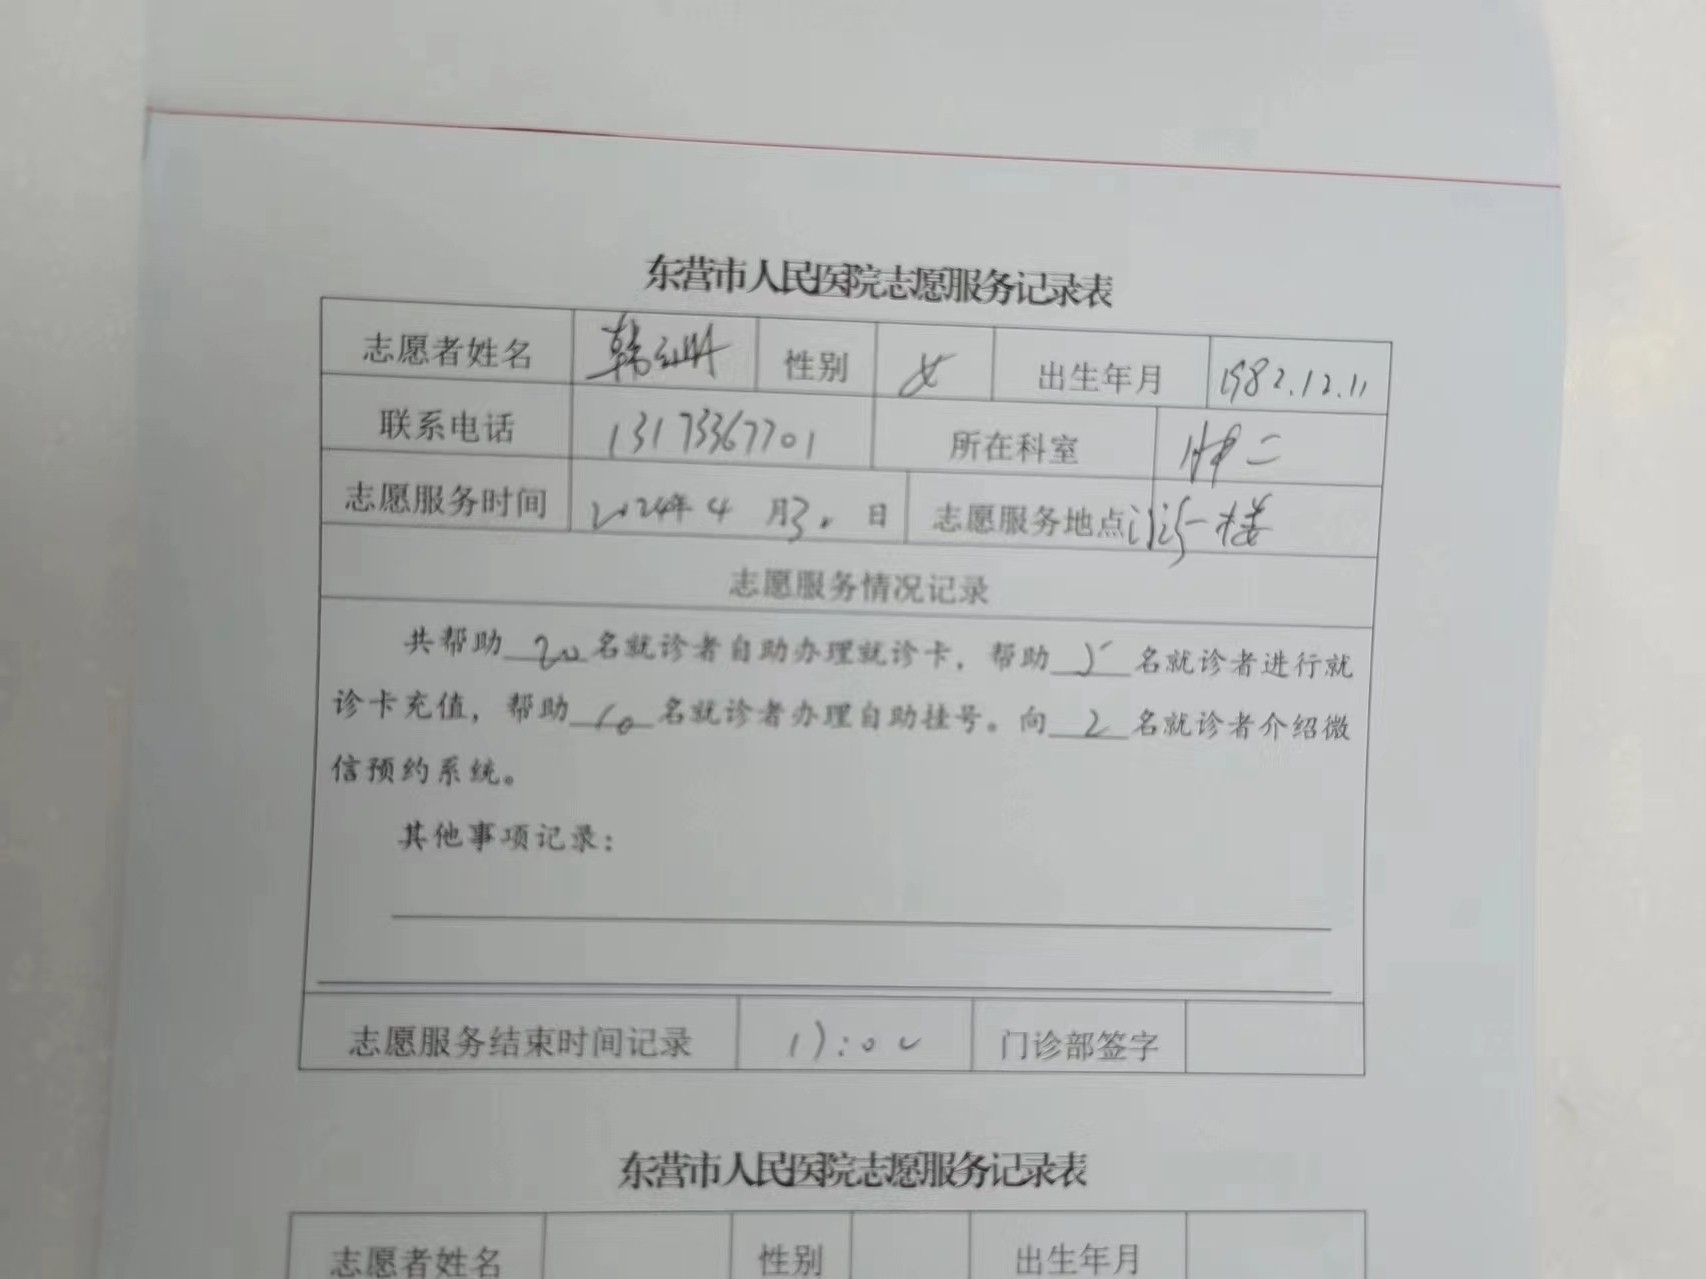 东营市人民医院志愿服务记录表
志愿者姓名 韩 性别 女 出生年月 1982.12.11
联系电话 13173367701 所在科室 二
志愿服务时间 2024年4月30日 志愿服务地点 门诊一楼
志愿服务情况记录
共帮助20名就诊者自助办理就诊卡，帮助5名就诊者进行就
诊卡充值，帮助10名就诊者办理自助挂号。向2名就诊者介绍微
信预约系统。
其他事项记录：
志愿服务结束时间记录 17:00 门诊部签字
东营市人民医院志愿服务记录表
志愿者姓名 性别 出生年月